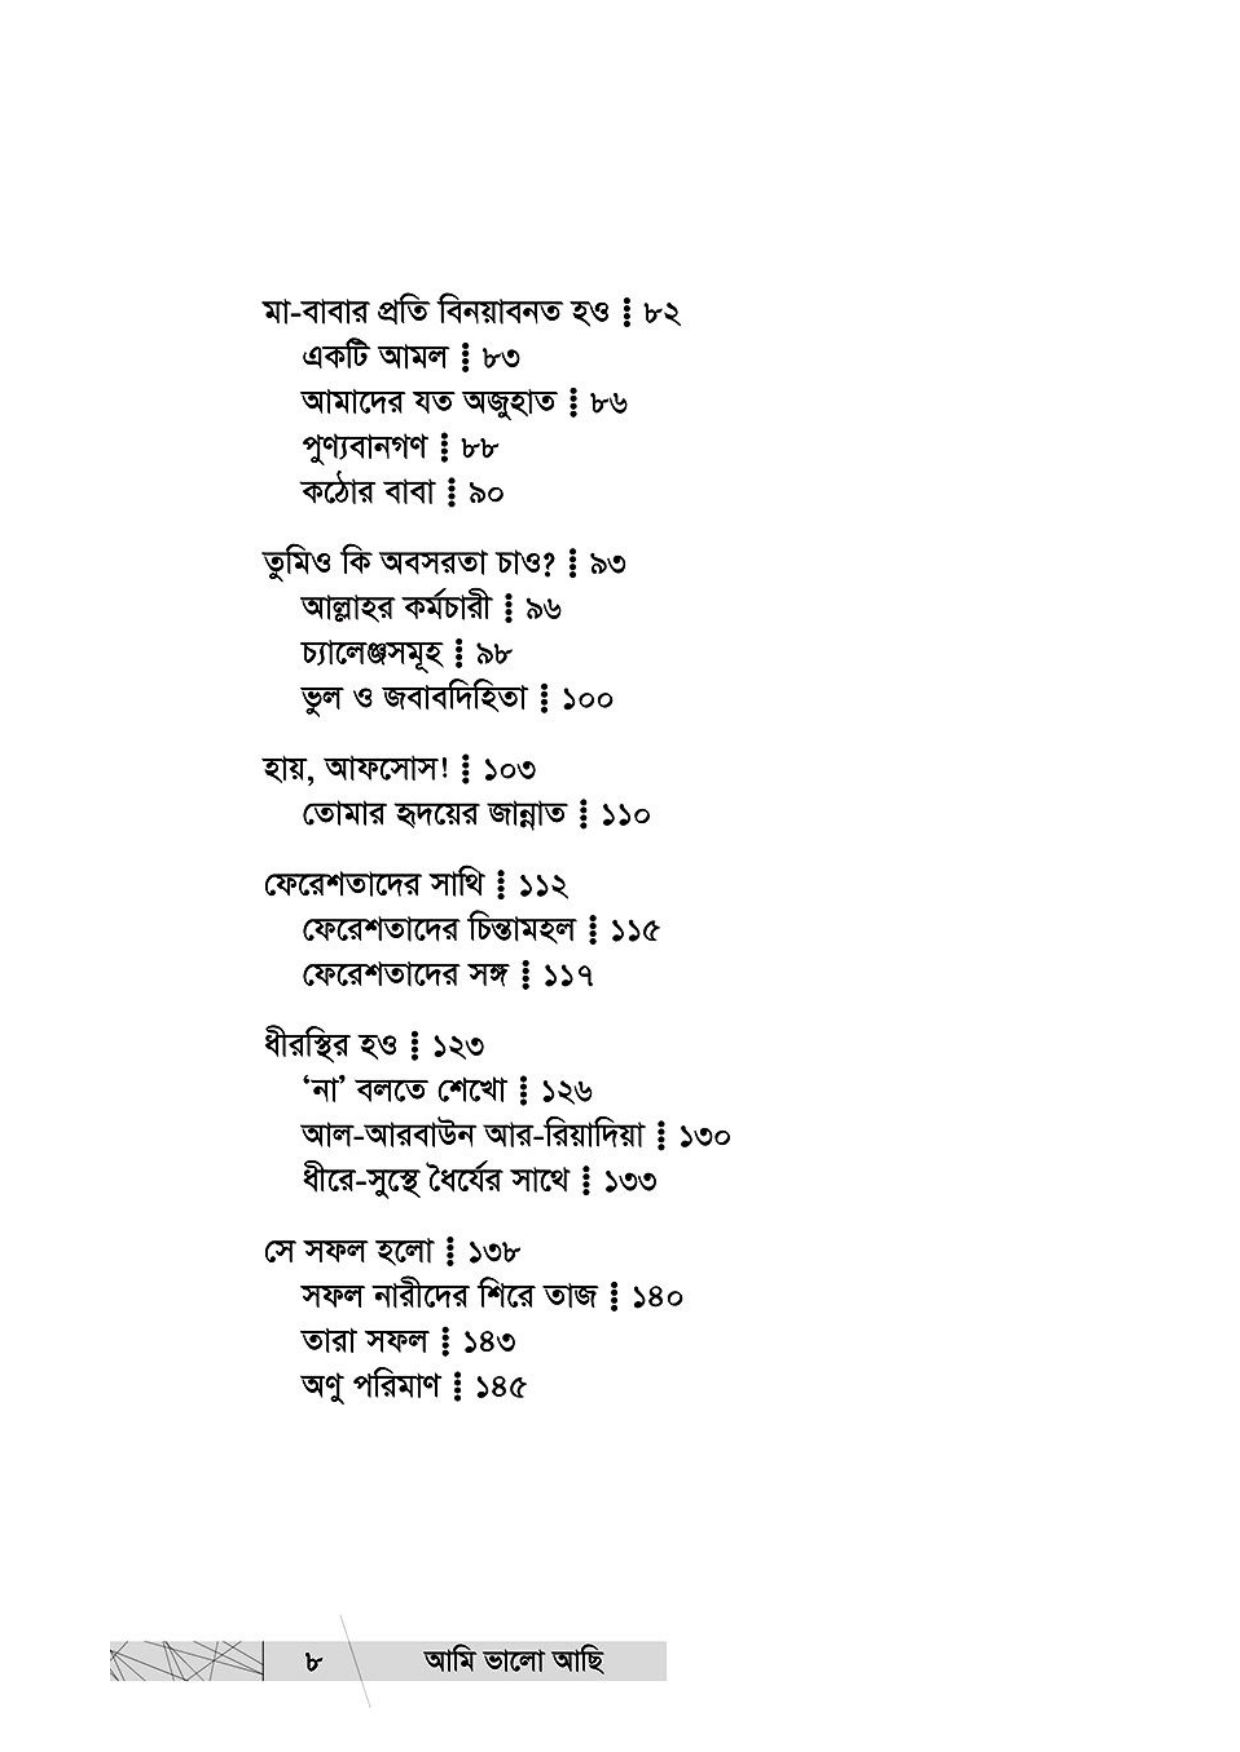 মা-বাবার প্রতি বিনয়াবনত হও ⁞ ৮২
একটি আমল ⁞ ৮৩
আমাদের যত অজুহাত ⁞ ৮৬
পুণ্যবানগণ ⁞ ৮৮
কঠোর বাবা ⁞ ৯০
তুমিও কি অবসরতা চাও? ⁞ ৯৩
আল্লাহর কর্মচারী ⁞ ৯৬
চ্যালেঞ্জসমূহ ⁞ ৯৮
ভুল ও জবাবদিহিতা ⁞ ১০০
হায়, আফসোস! ⁞ ১০৩
তোমার হৃদয়ের জান্নাত ⁞ ১১০
ফেরেশতাদের সাথি ⁞ ১১২
ফেরেশতাদের চিন্তামহল ⁞ ১১৫
ফেরেশতাদের সঙ্গ ⁞ ১১৭
ধীরস্থির হও ⁞ ১২৩
‘না’ বলতে শেখো ⁞ ১২৬
আল-আরবাউন আর-রিয়াদিয়া ⁞ ১৩০
ধীরে-সুস্থে ধৈর্যের সাথে ⁞ ১৩৩
সে সফল হলো ⁞ ১৩৮
সফল নারীদের শিরে তাজ ⁞ ১৪০
তারা সফল ⁞ ১৪৩
অণু পরিমাণ ⁞ ১৪৫
৮ আমি ভালো আছি